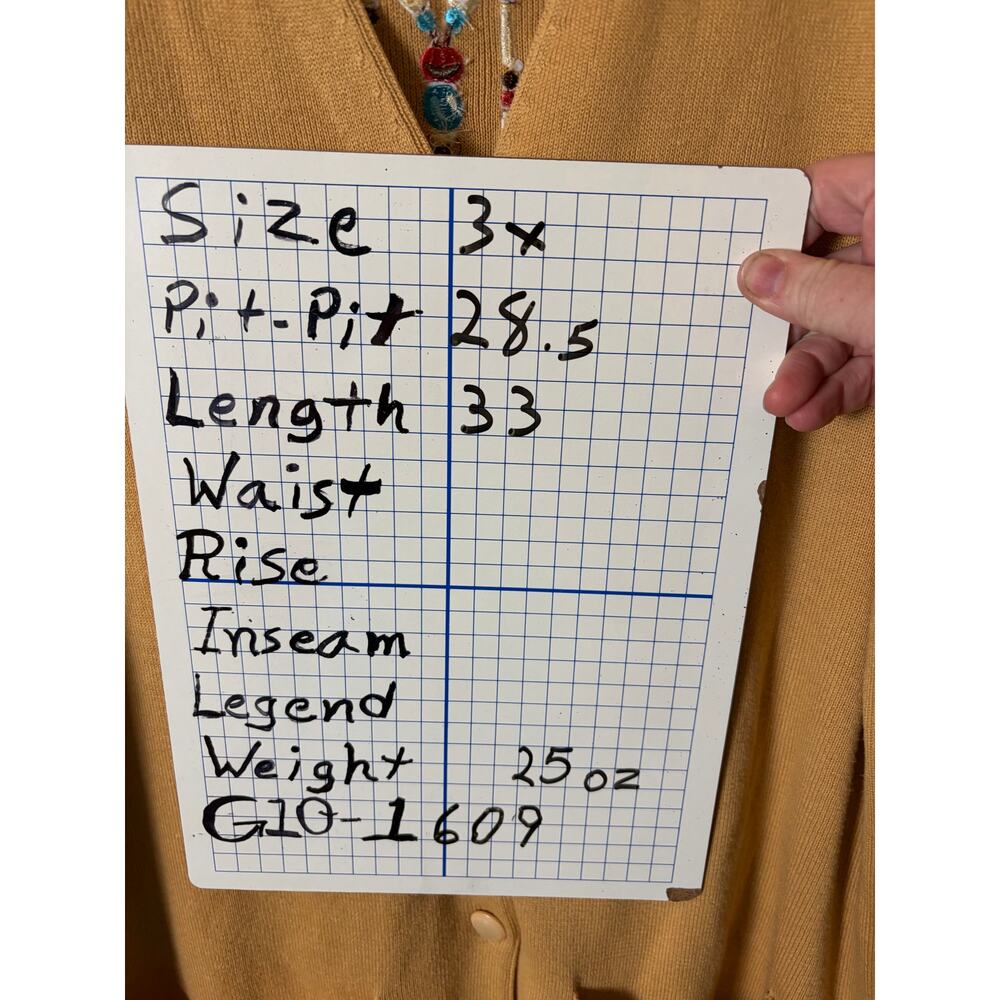 Size 3x
Pit-Pit 28.5
Length 33
Waist
Rise
Inseam
Legend
Weight 25oz
G10-1609